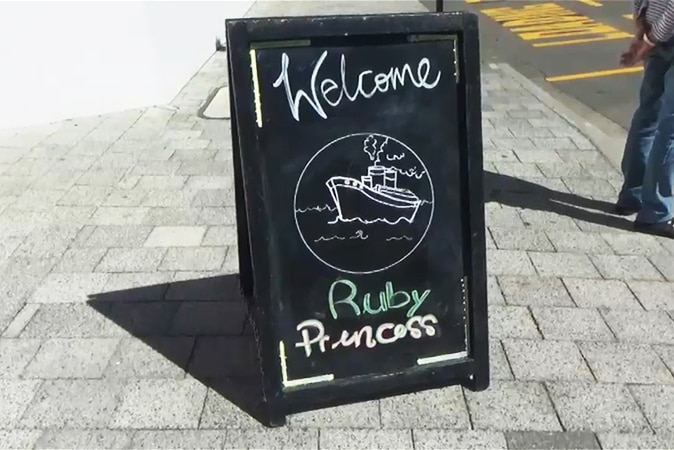 Welcome
Ruby
Princess